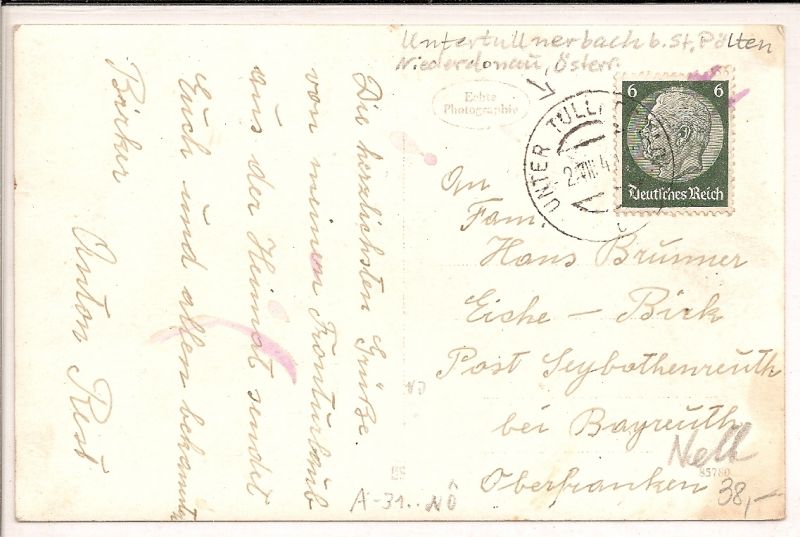 Untertullnerbach b. St. Pölten
Niederdonau, Österr.
Echte
Photographie
UNTER TULLN
2.VIII.41
6 6
Deutsches Reich
Die herzlichsten Grüße
von meinem Fronturlaub
aus der Heimat sendet
Euch und allen bekannten
Birker
Anton Rest
An
Fam.
Hans Brunner
Eiche – Birk
Post Seybothenreuth
bei Bayreuth
Oberfranken
Nell
85780
38,-
A-31.. NÖ